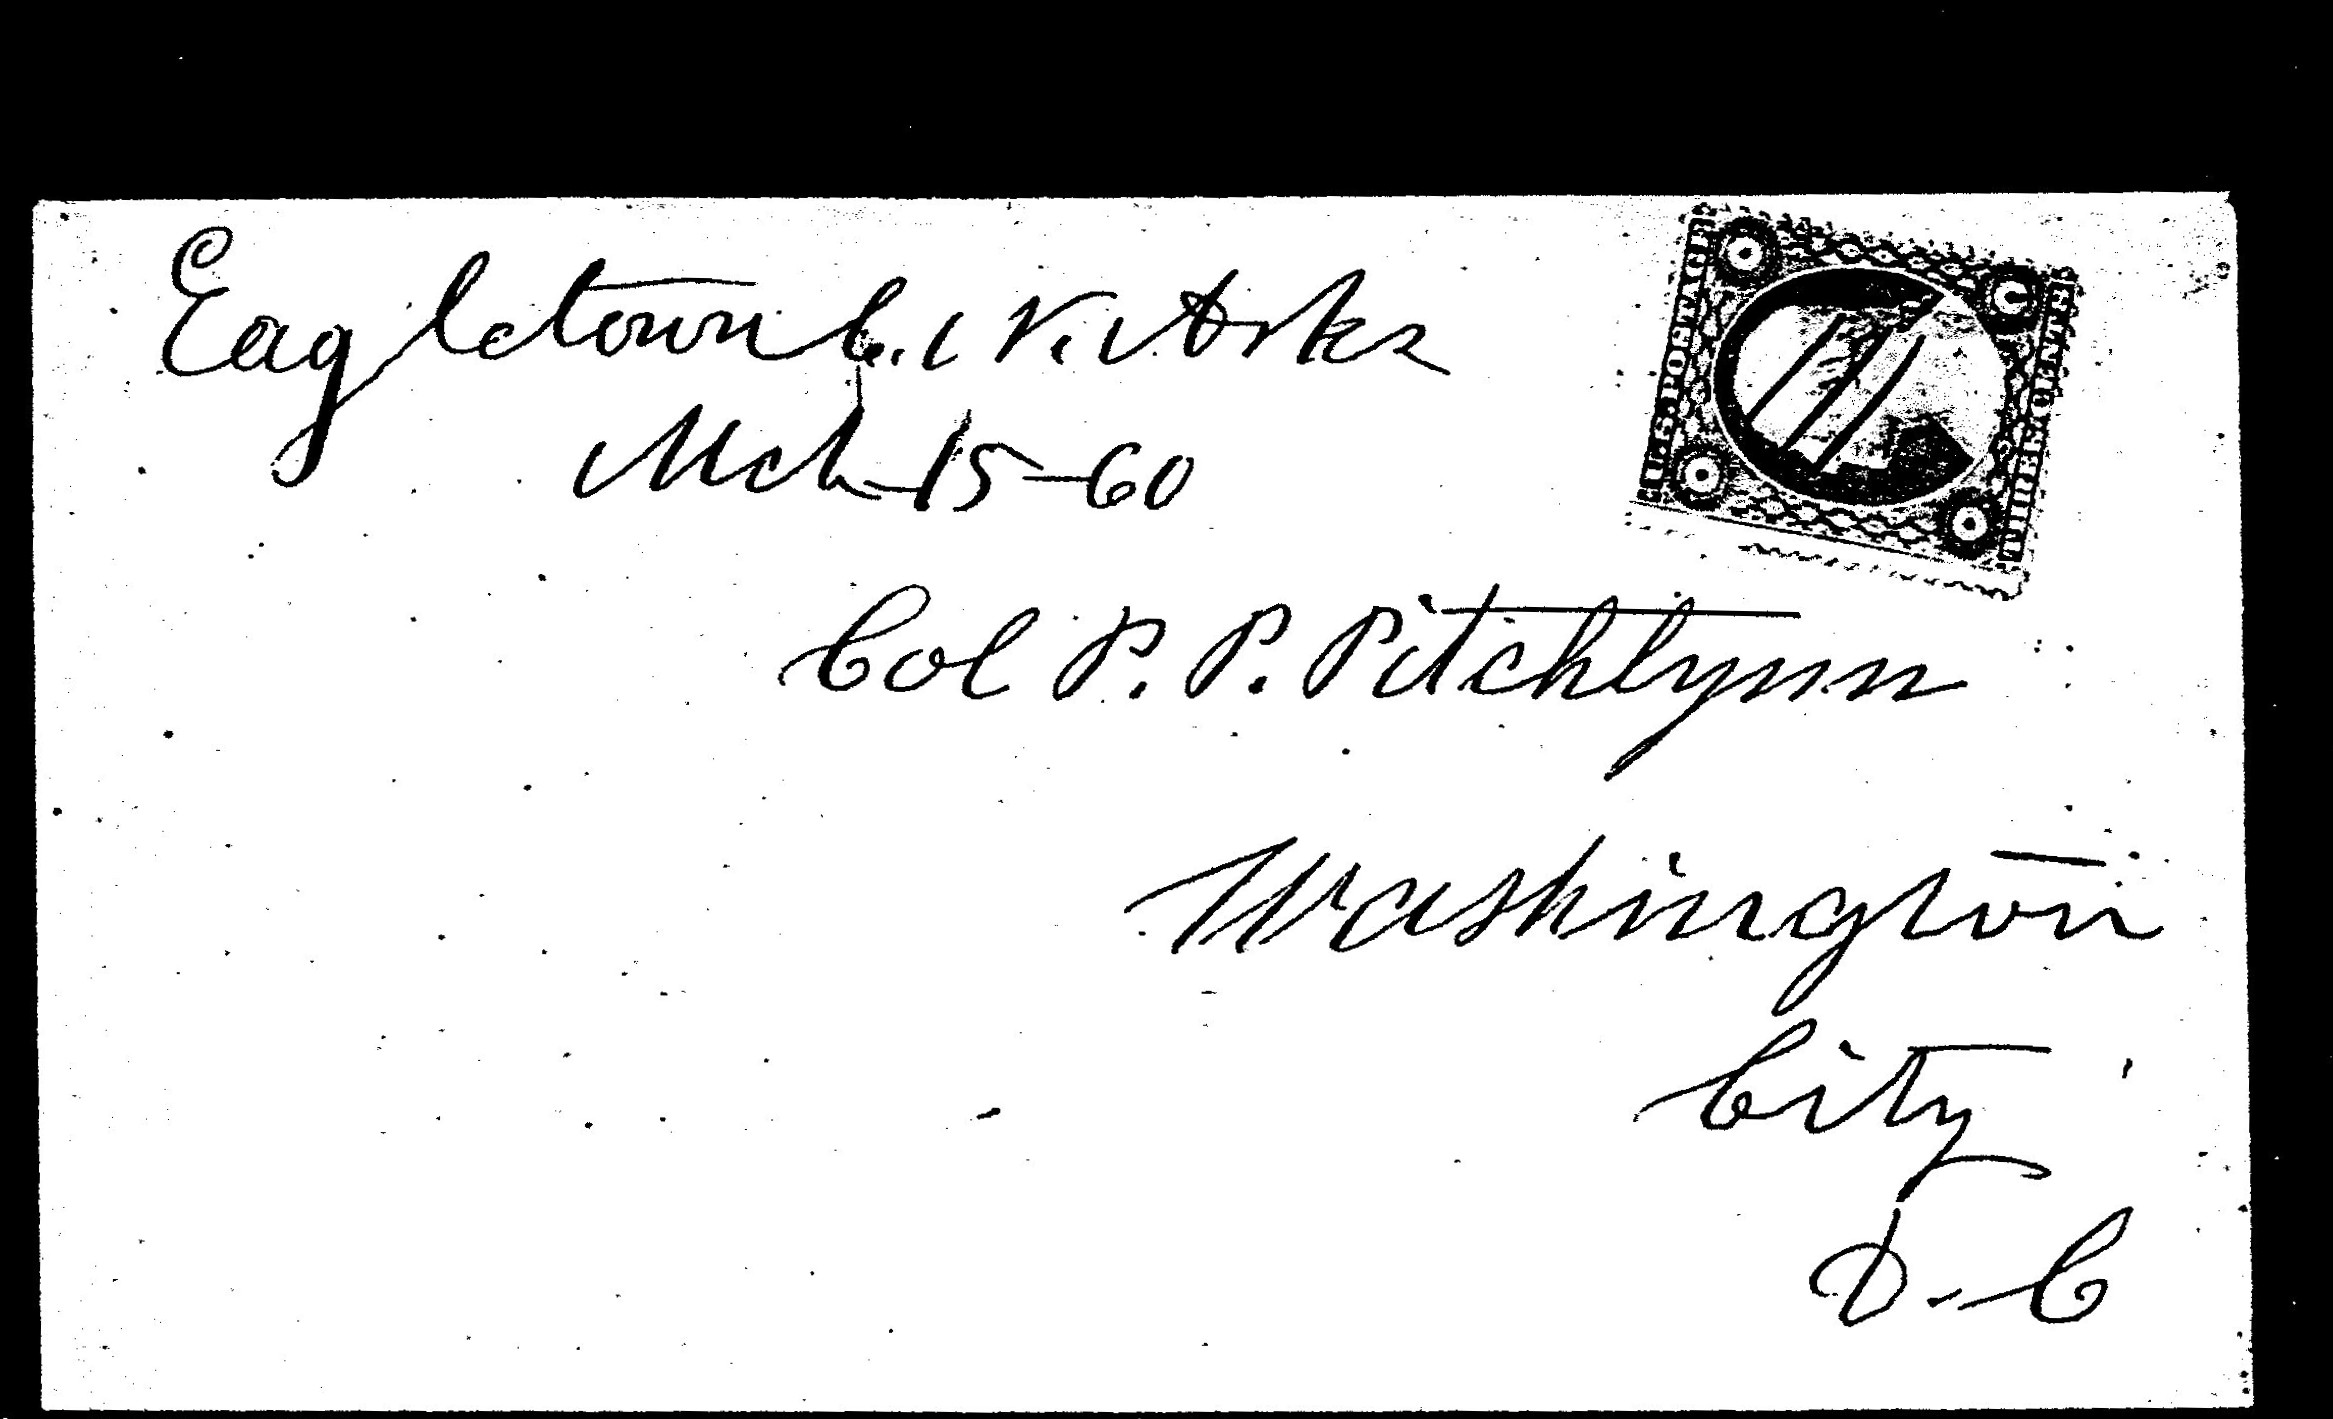 Eagletown C. N. Arks
Mch 15-60
U.S. POSTAGE
THREE CENTS
Col P. P. Pitchlynn
Washington
City
D. C